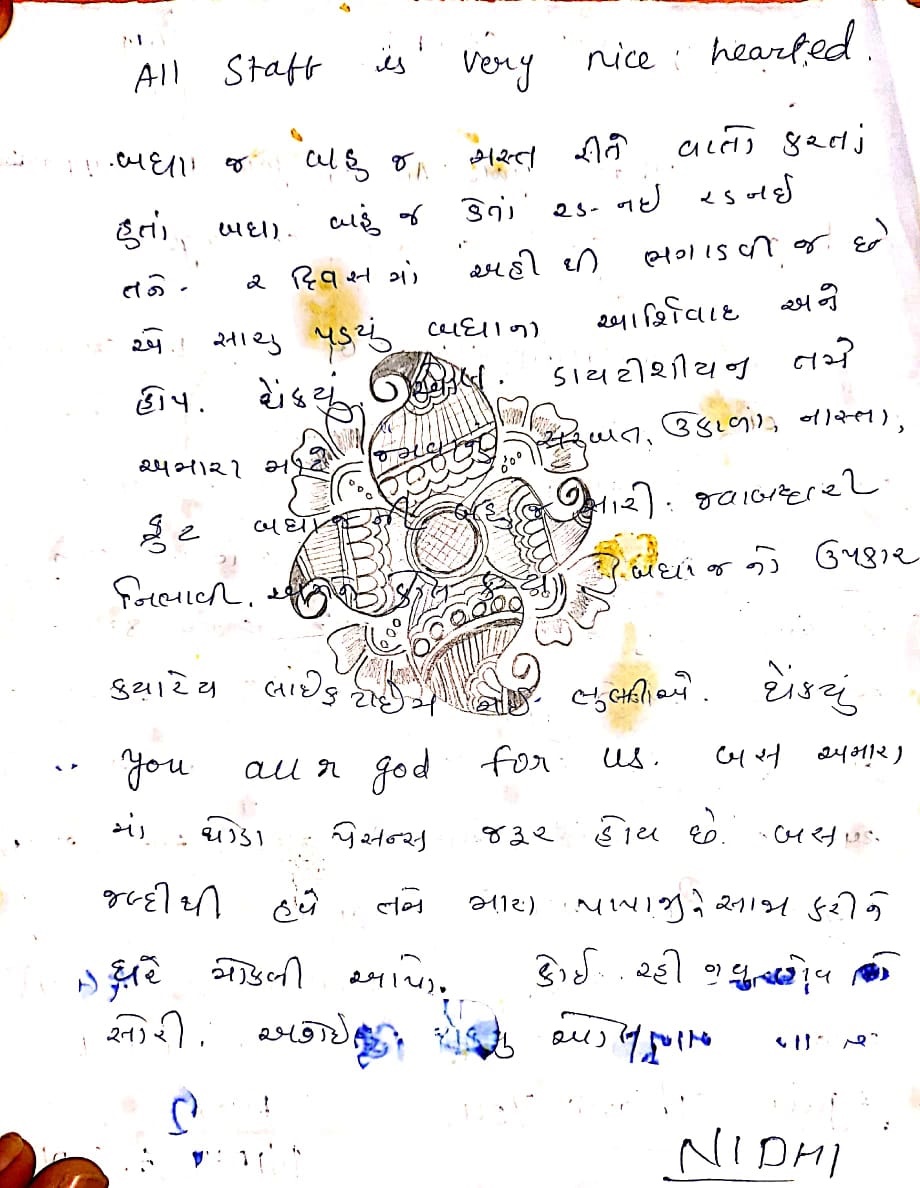 All staff is very nice hearted.
બધા જ બાહુ જ મસ્ત રીતે વાતો કરતાં
હતાં, બધા બાહું જ કેતાં રડ-નઈ રડનઈ
તને ૨ દિવસ માં અહી થી ભગાડવી જ છે
એ સારુ પડયું બધાના આર્શિવાદ અને
હોપ. થેંકયું ડાયટીશીયન તમે
અમારા માટે જમવાનું સૂચવાત, ઉકાળા, નાસ્તા,
ફ્રુટ બધા જ ની બહુ જ સારી જવાબદારી
નિભાવી. બધાં જ નો ઉપકાર
કયારેય લાઈફ ટાઈમ નઈ ભુલીએ. થેંકયું
you all r god for us. બસ અમારા
માં થોડા પેસન્સ જરૂર હોય છે. બસ
જલ્દીથી હવે તમે મારા પાપાજીને સાજા કરીને
ઘરે મોકલી આપો. કોઈ રહી ગયુ હોય તો
સોરી.
NIDHI